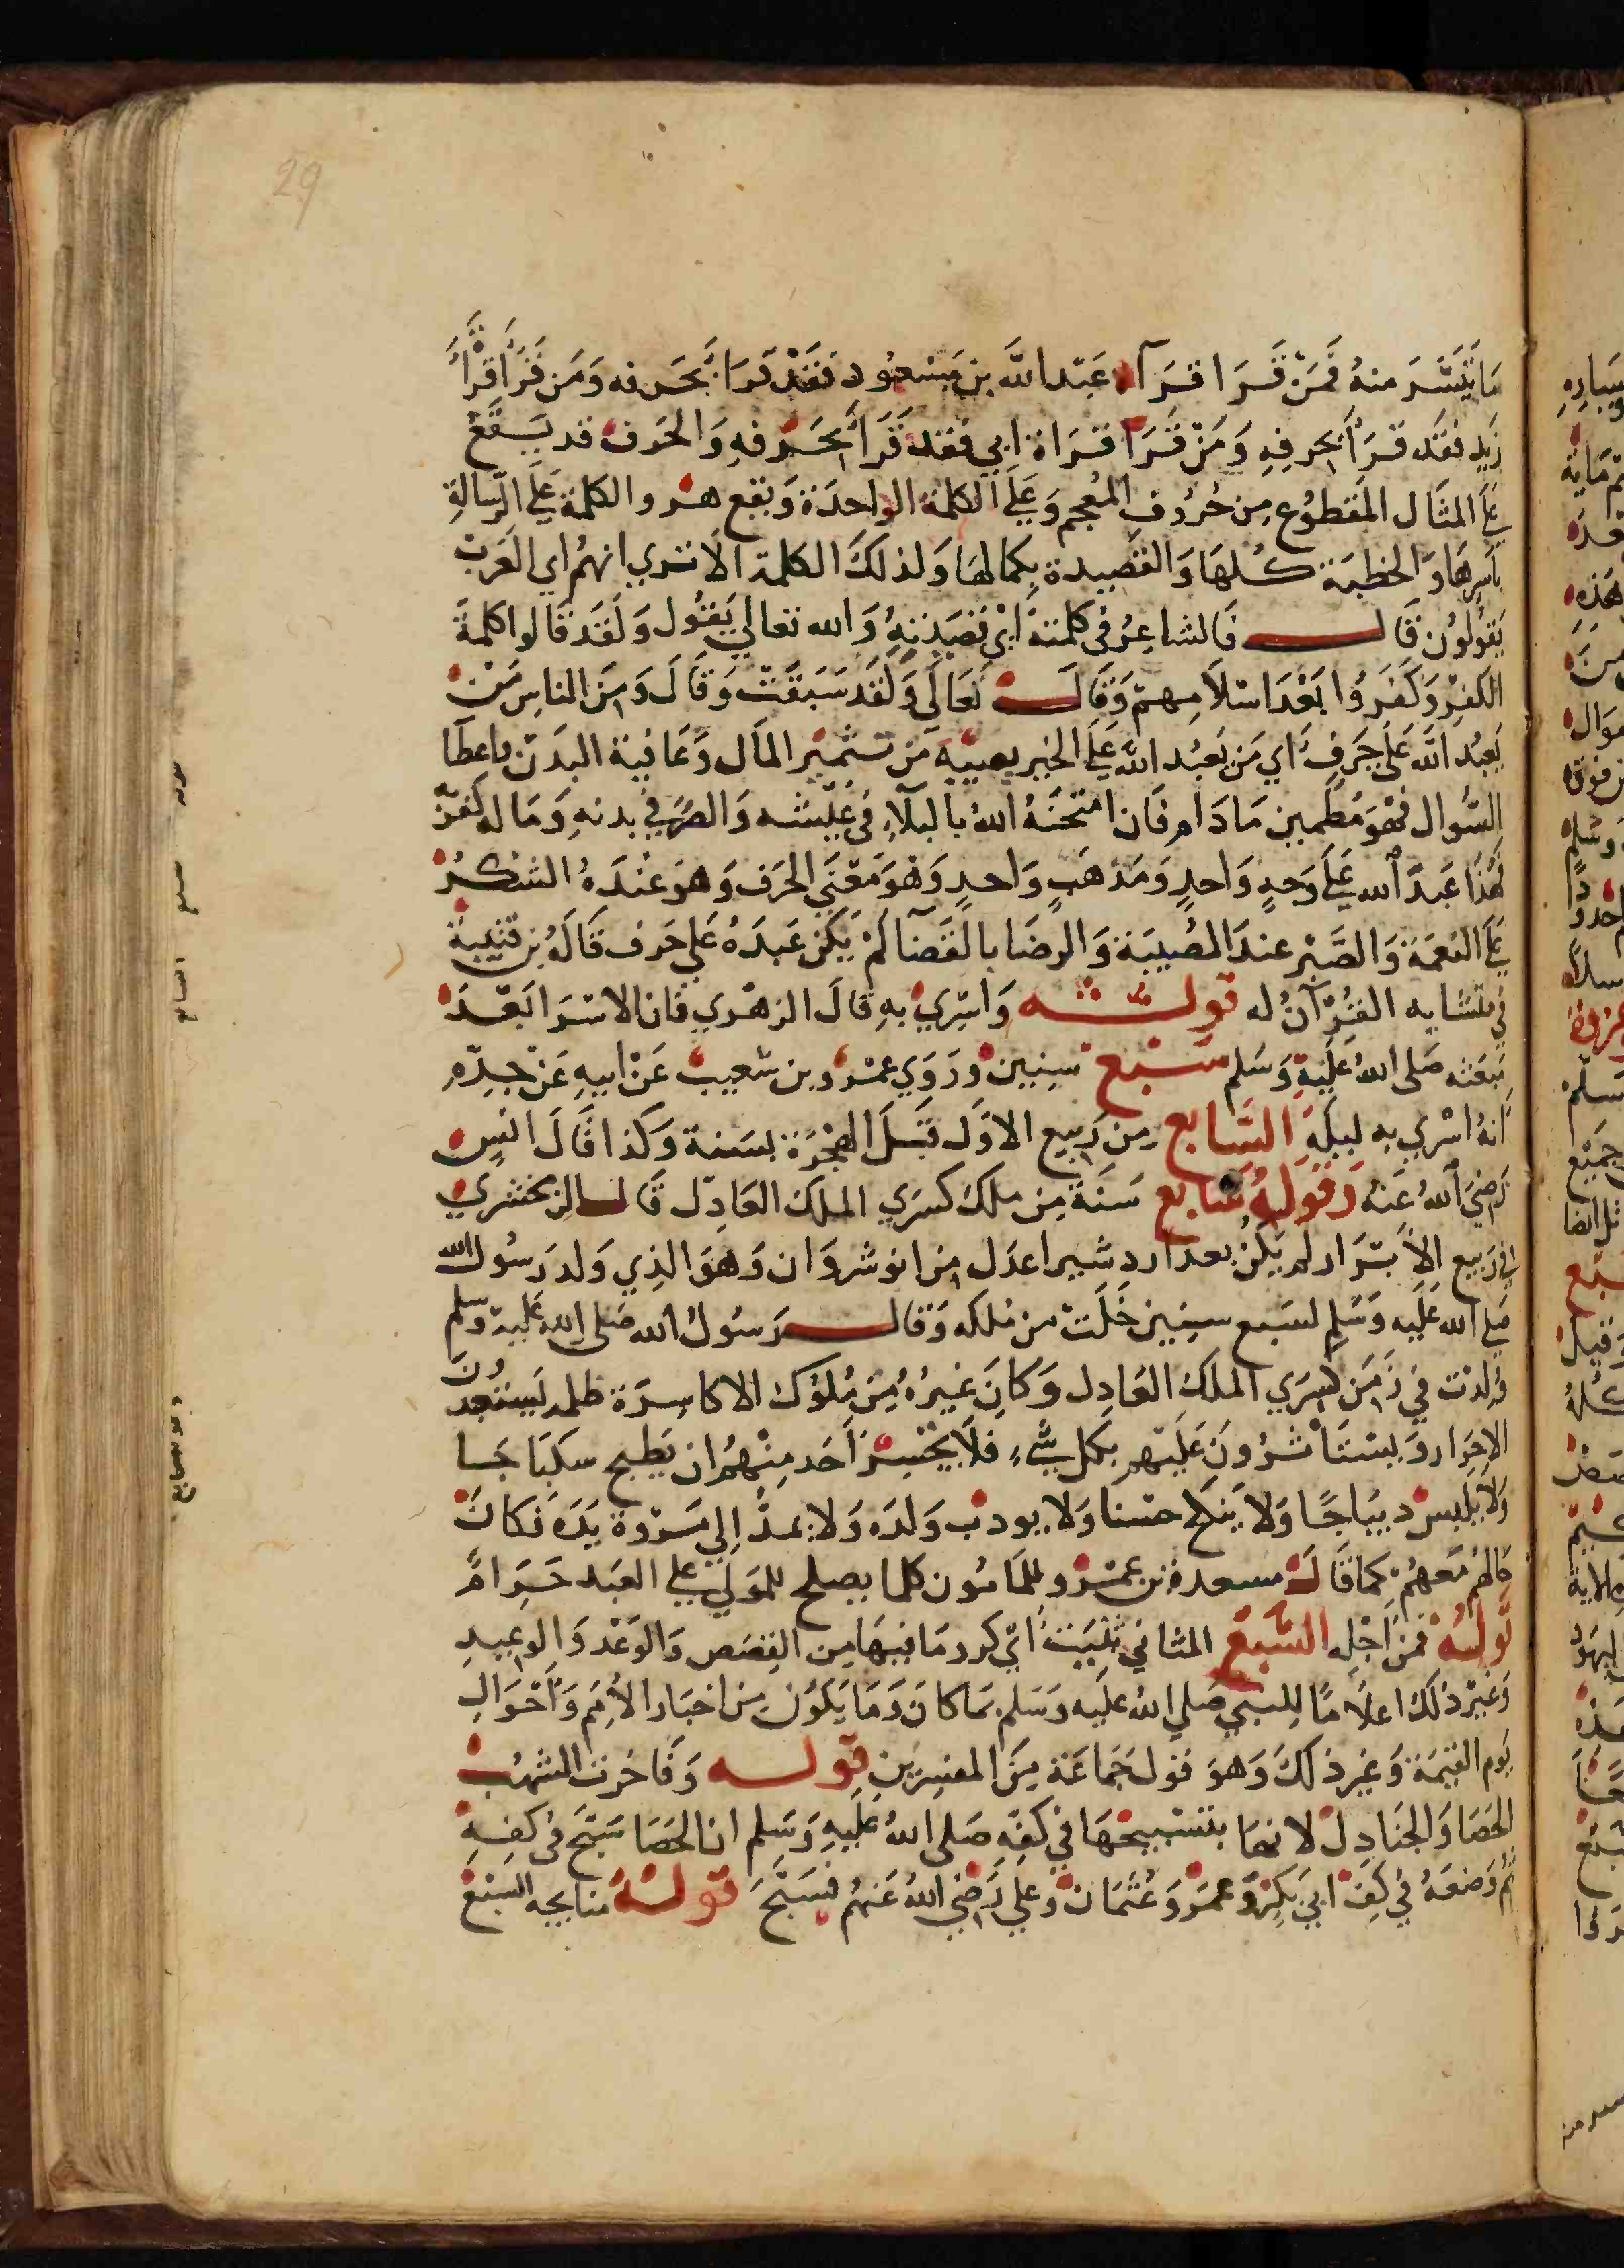 29
ما تيسر منه فمن قرا قراة عبد الله بن مسعود فقد قرا بحرفه ومن قرا قراة
زيد فقد قرا بحرفه ومن قرا قراة ابي فقد قرا بحرفه والحرف قد يقع
على المثال المقطوع من حروف المعجم وعلى الكلمة الواحدة ويقع هذ والكلمة على الرسالة
باسرها والخطبة كلها والقصيدة بكمالها ولذلك الكلمة الا تري انهم اي العرب
يقولون قال فالشاعر في كلمته اي قصيدته والله تعالي يقول ولقد قالوا كلمة
الكفر وكفروا بعد اسلامهم وقال تعالي ولقد سبقت وقال ومن الناس من
يعبد الله على حرف اي من يعبد الله على الخير يصيبه من تثمير المال وعافية البدن واعطا
السوال فهو مطمين ما دام فان امتحنه الله بالبلاء في عيشه والضر في بدنه وماله كفر
فهذا عبد الله على وجه واحد ومذهب واحد وهو معني الحرف وهو عنده الشكر
على النعمة والصبر عند المصيبة والرضا بالقضا لم يكن عبده على حرف قاله بن قتيبة
في متشابه القران له قوله واسري به قال الزهري فان الاسرا بعد
مبعثه صلى الله عليه وسلم سبع سنين وروي عمرو بن شعيب عن ابيه عن جده
انه اسري به ليله السابع من ربيع الاول قبل الهجرة بسنة وكذا قال انس
رضي الله عنه وقوله سابع سنة من ملك كسري الملك العادل قال الزمخشري
في ربيع الابرار لم يكن بعد اردشير اعدل من انوشروان وهو الذي ولد رسول الله
صلى الله عليه وسلم لسبع سنين خلت من ملكه وقال رسول الله صلى الله عليه وسلم
ولدت في زمن كسري الملك العادل وكان غيره من ملوك الاكاسرة ظلمه يستعبدون
الاحرار ويستاثرون عليهم بكل شيء فلا يجسر احد منهم ان يطبح سكباجا
ولا يلبس ديباجا ولا ينكح حسنا ولا يودب ولده ولا يمد الي مروة يده فكان
مالهم معهم كما قال مسعدة بن عمرو للمامون كلما يصلح للمولي علي العبد حرام
قوله فمن اجله السبع المثاني ثنيت اي كرر ما فيها من القصص والوعد والوعيد
وغير ذلك اعلاما للنبي صلى الله عليه وسلم بما كان وما يكون من اخبار الامم واحوال
يوم القيمة وغير ذلك وهو قول جماعة من المفسرين قوله وفاخرت الشهب
الحصا والجنادل لانها بتسبيحها في كفه صلى الله عليه وسلم ان الحصا سبح في كفه
ثم وضعه في كف ابي بكر وعمر وعثمان وعلي رضي الله عنهم فسبح قوله السبع